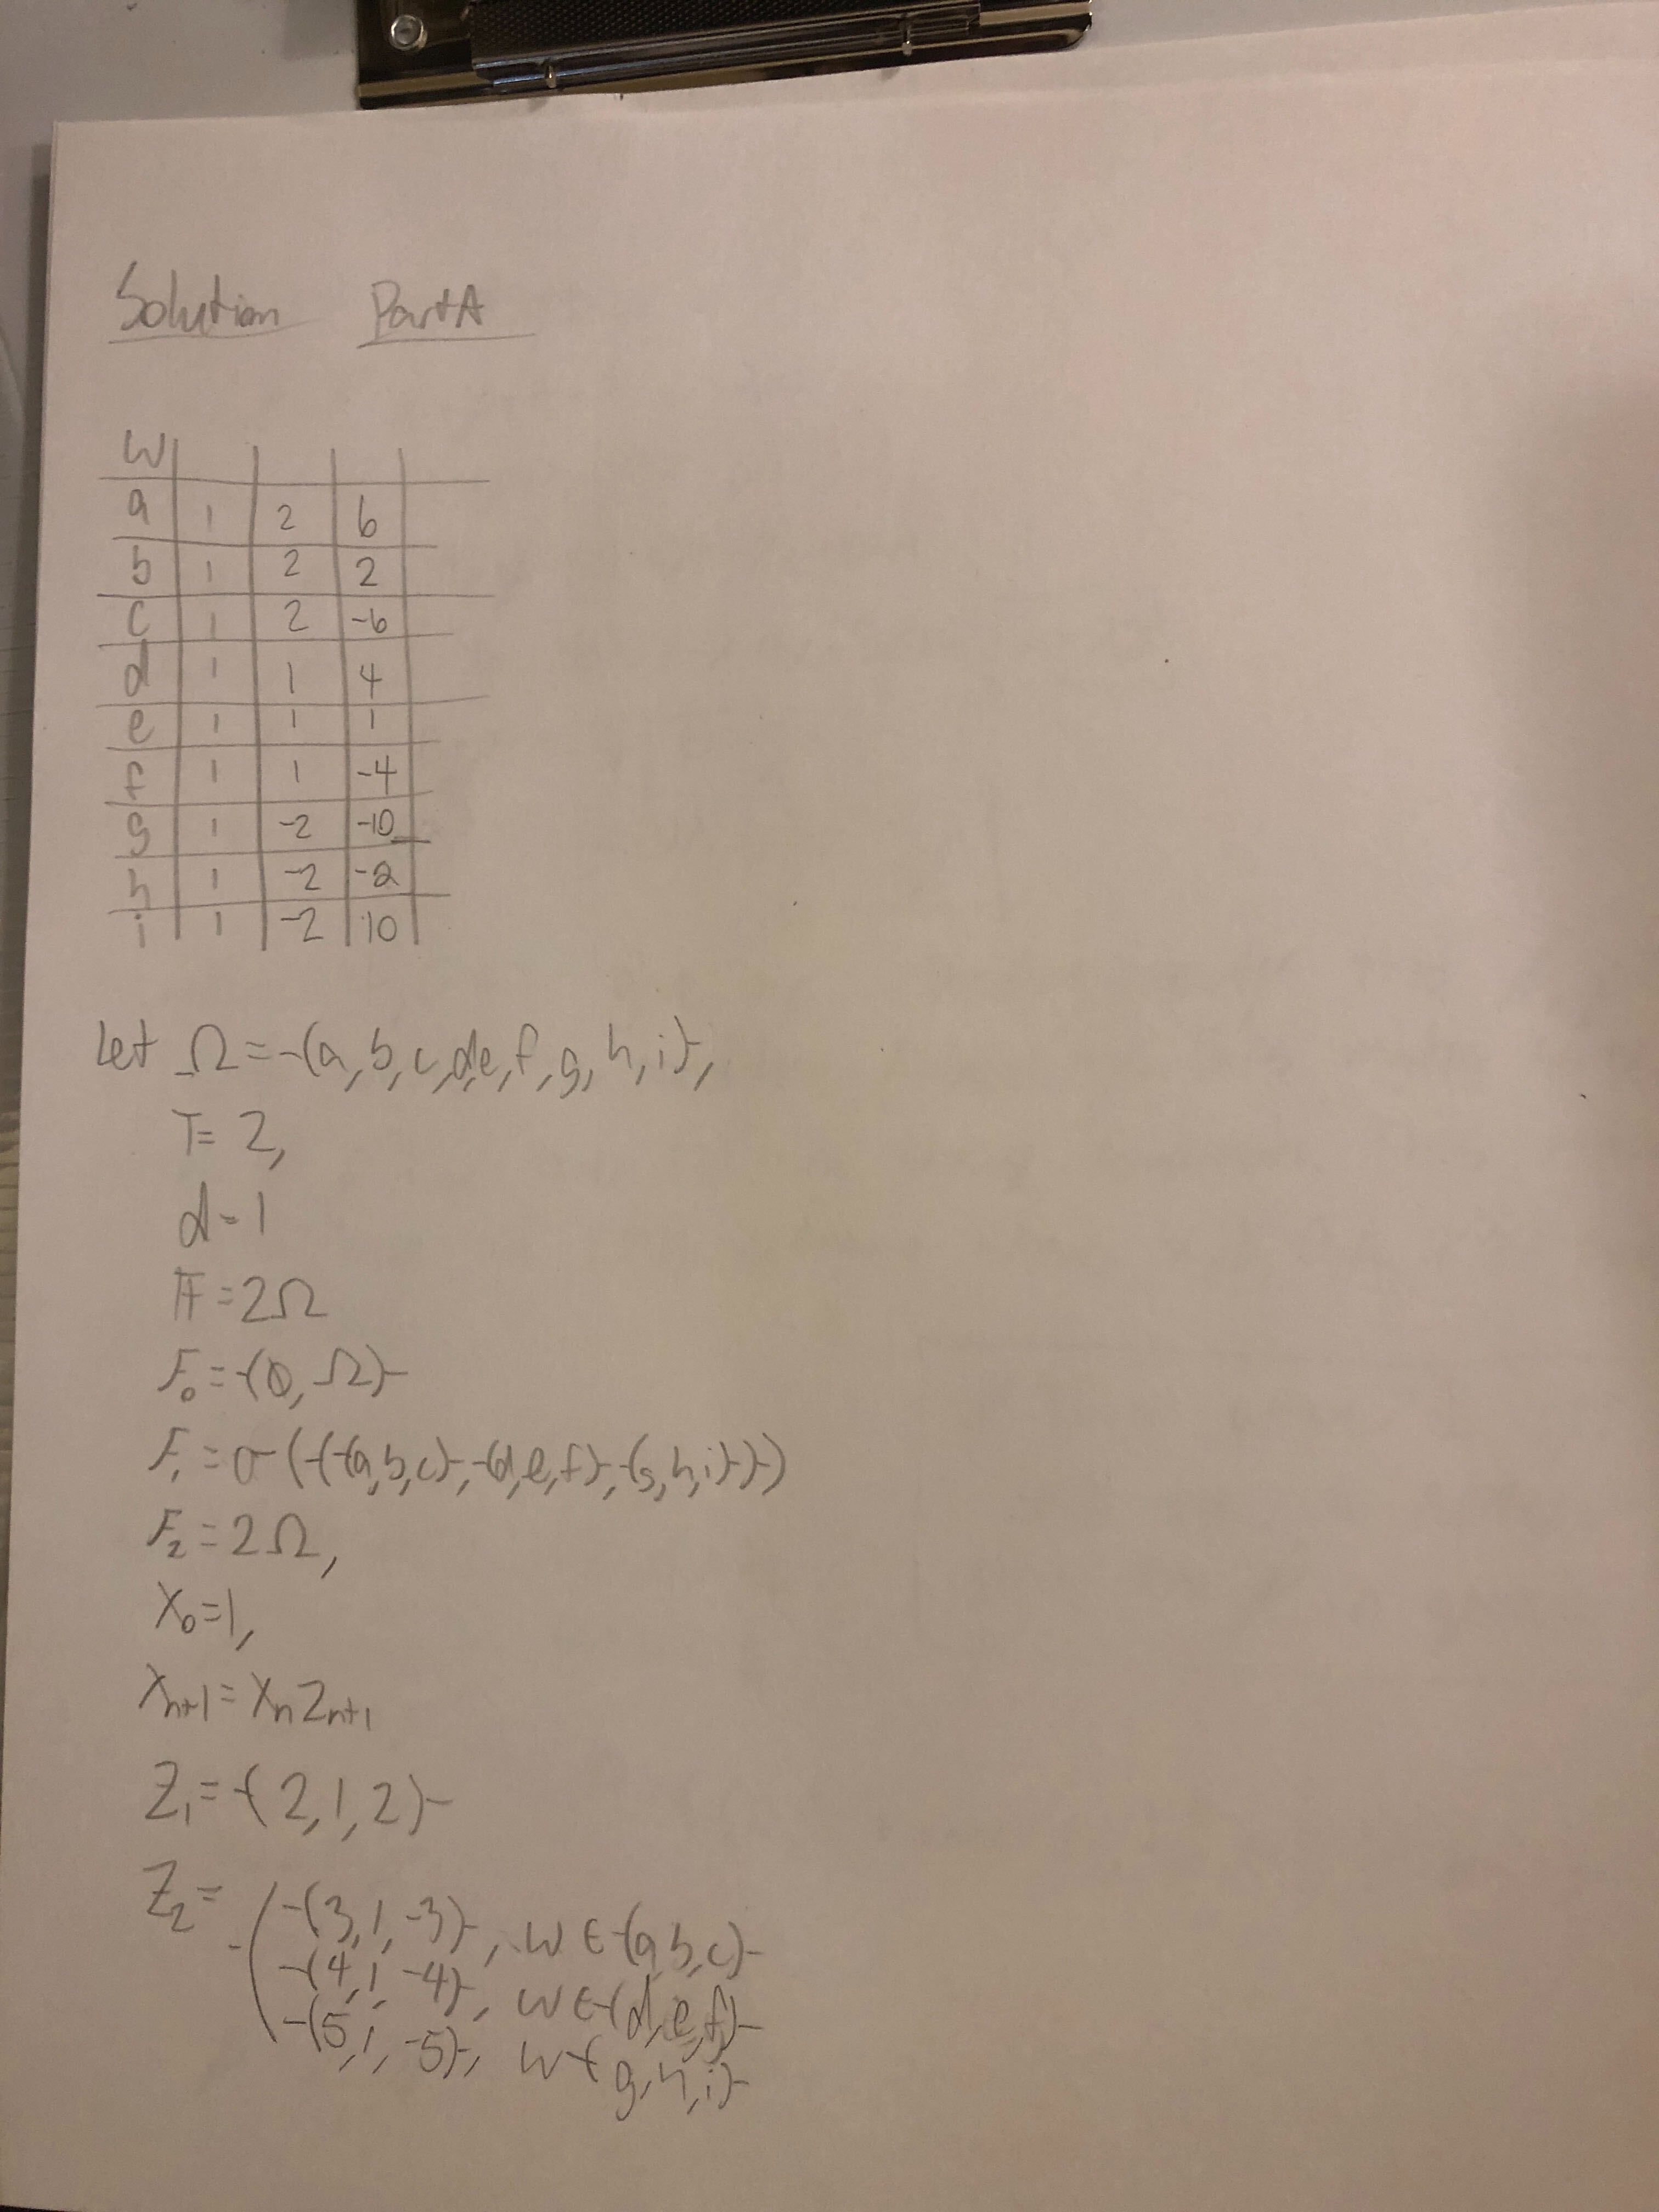 Solution Part A
W
a 1 2 6
b 1 2 2
c 1 2 -6
d 1 1 4
e 1 1 1
f 1 1 -4
g 1 -2 -10
h 1 -2 -2
i 1 -2 10
Let Ω = {a, b, c, d, e, f, g, h, i},
T = 2,
d = 1
F = 2Ω
F₀ = {∅, Ω}
F₁ = σ({{a,b,c}, {d,e,f}, {g,h,i}})
F₂ = 2Ω,
X₀ = 1,
Xn+1 = Xn Zn+1
Z₁ = {2, 1, 2}
Z₂ =
{3, 1, -3}, W ∈ {a, b, c}
{4, 1, -4}, W ∈ {d, e, f}
{5, 1, -5}, W { g, h, i}